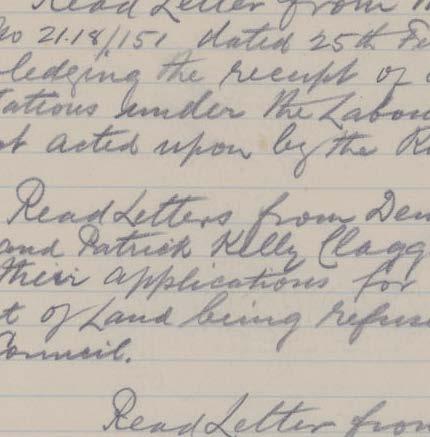 Read Letter from
No 21.18/151 dated 25th Fe
ledging the receipt of
tations under the Labou
ot acted upon by the Ru
Read Letters from Den
and Patrick Kelly Clagg
their applications for
t of Land being refus
Council.
Read Letter from